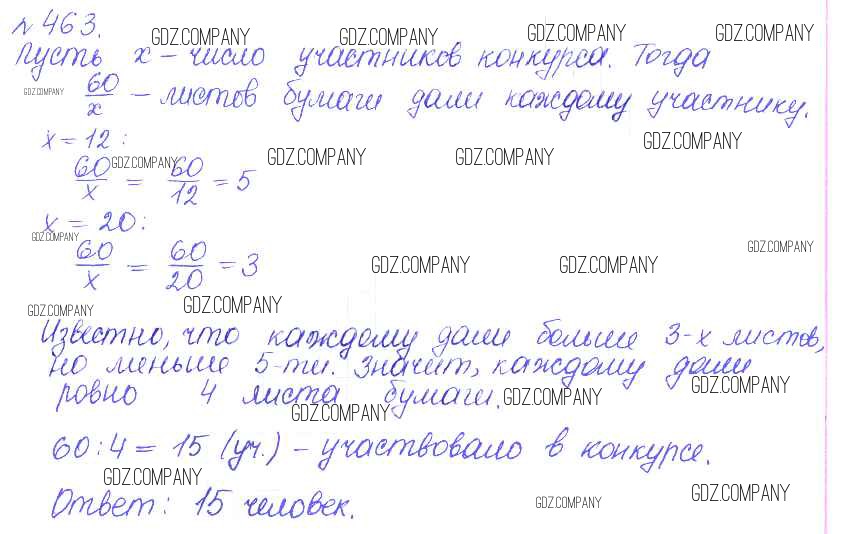 № 463. GDZ.COMPANY GDZ.COMPANY GDZ.COMPANY GDZ.COMPANY
Пусть х – число участников конкурса. Тогда
GDZ.COMPANY 60/х – листов бумаги дали каждому участнику.
х = 12 : GDZ.COMPANY
60/х = 60/12 = 5 GDZ.COMPANY GDZ.COMPANY GDZ.COMPANY
х = 20 :
GDZ.COMPANY GDZ.COMPANY
60/х = 60/20 = 3 GDZ.COMPANY GDZ.COMPANY
GDZ.COMPANY GDZ.COMPANY
Известно, что каждому дали больше 3-х листов,
но меньше 5-ти. Значит, каждому дали
ровно 4 листа бумаги. GDZ.COMPANY GDZ.COMPANY
GDZ.COMPANY
60 : 4 = 15 (уч.) – участвовало в конкурсе.
GDZ.COMPANY
Ответ : 15 человек. GDZ.COMPANY GDZ.COMPANY